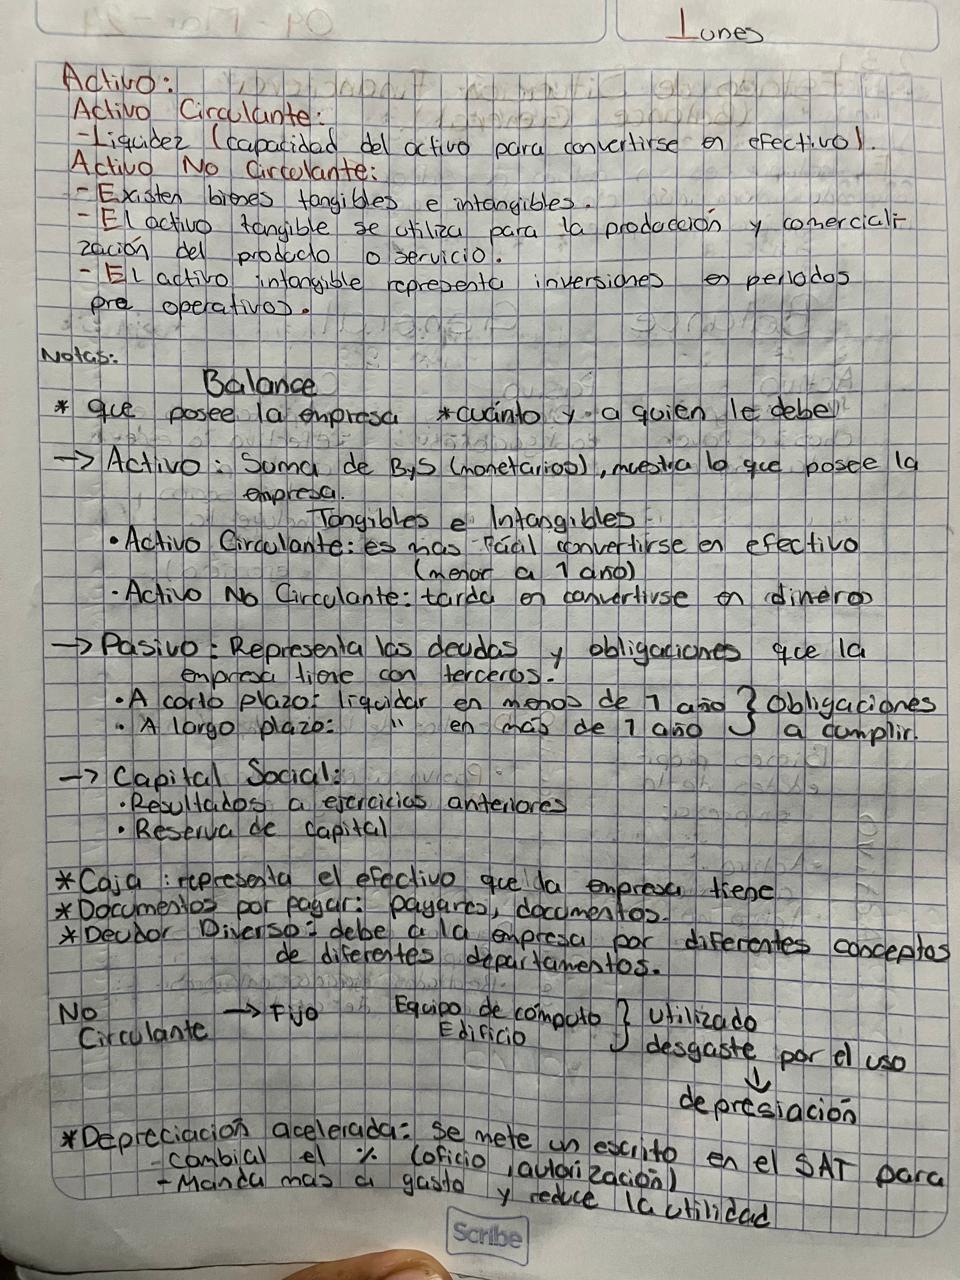 Lunes
Activo:
Activo Circulante:
-Liquidez (capacidad del activo para convertirse en efectivo).
Activo No Circulante:
- Existen bienes tangibles e intangibles.
- El activo tangible se utiliza para la producción y comerciali-
zación del producto o servicio.
- El activo intangible representa inversiones en periodos
pre operativos.
Notas:
Balance
* que posee la empresa *cuánto y a quien le debe
→ Activo: Suma de ByS (monetarios), muestra lo que posee la
empresa.
Tangibles e Intangibles
• Activo Circulante: es mas fácil convertirse en efectivo
(menor a 1 año)
• Activo No Circulante: tarda en convertirse en dinero
→ Pasivo: Representa las deudas y obligaciones que la
empresa tiene con terceros.
• A corto plazo: liquidar en menos de 1 año } Obligaciones
• A largo plazo: " en más de 1 año } a cumplir.
→ Capital Social:
• Resultados a ejercicios anteriores
• Reserva de capital
*Caja: representa el efectivo que la empresa tiene
*Documentos por pagar: pagares, documentos.
*Deudor Diverso: debe a la empresa por diferentes conceptos
de diferentes departamentos.
No → Fijo Equipo de cómputo } utilizado
Circulante Edificio } desgaste por el uso
↓
depresiación
*Depreciación acelerada: se mete un escrito en el SAT para
- cambial el % (oficio, autorización)
- Manda mas a gasto y reduce la utilidad
Scribe